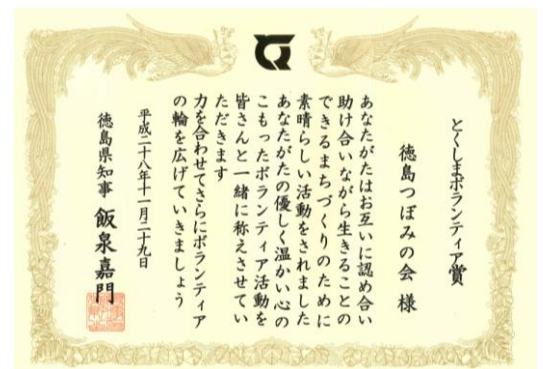 とくしまボランティア賞
徳島つぼみの会 様
あなたがたはお互いに認め合い
助け合いながら生きることの
できるまちづくりのために
素晴らしい活動をされました
あなたがたの優しく温かい心の
こもったボランティア活動を
皆さんと一緒に称えさせてい
ただきます
力を合わせてさらにボランティア
の輪を広げていきましょう
平成二十八年十一月二十九日
徳島県知事 飯泉嘉門